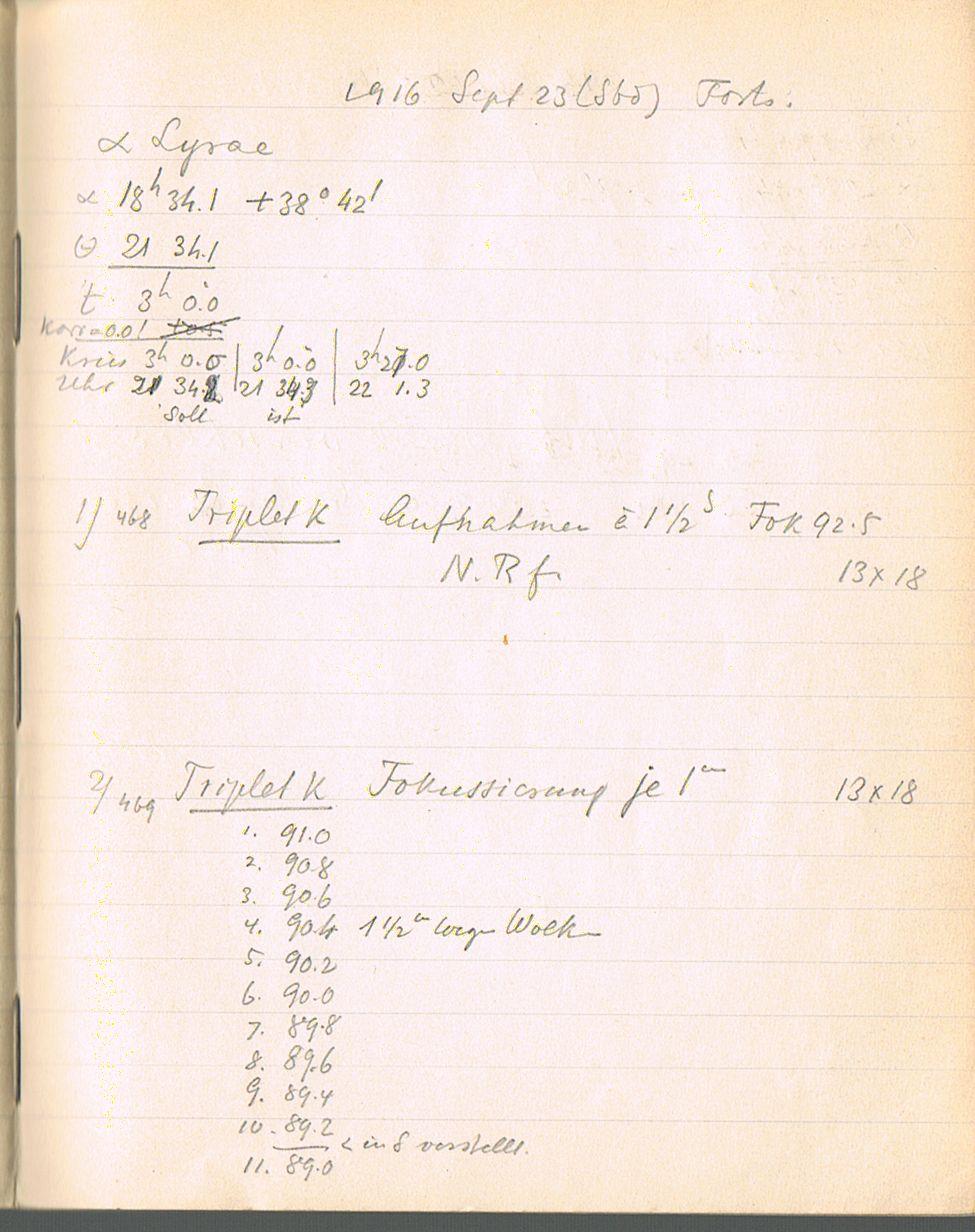 1916 Sept 23 (Sbd) Forts.
α Lyrae
α 18h 34.1 +38° 42'
Θ 21 34.1
t 3h 0.0
Korr = 0.0!
Kreis 3h 0.0 | 3h 0.0 | 3h 27.0
Uhr 21 34.2 | 21 34.3 | 22 1.3
Soll ist
1) 468 Triplet K Aufnahmen à 1 1/2 s Fok 92.5
N. R f.
13 x 18
2) 469 Triplet K Fokussierung je 1m 13 x 18
1. 91.0
2. 90.8
3. 90.6
4. 90.4 1 1/2m weg. Wolk
5. 90.2
6. 90.0
7. 89.8
8. 89.6
9. 89.4
10. 89.2
α in δ verstellt.
11. 89.0